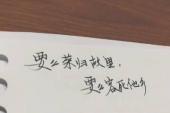 要么荣归故里，
要么客死他乡